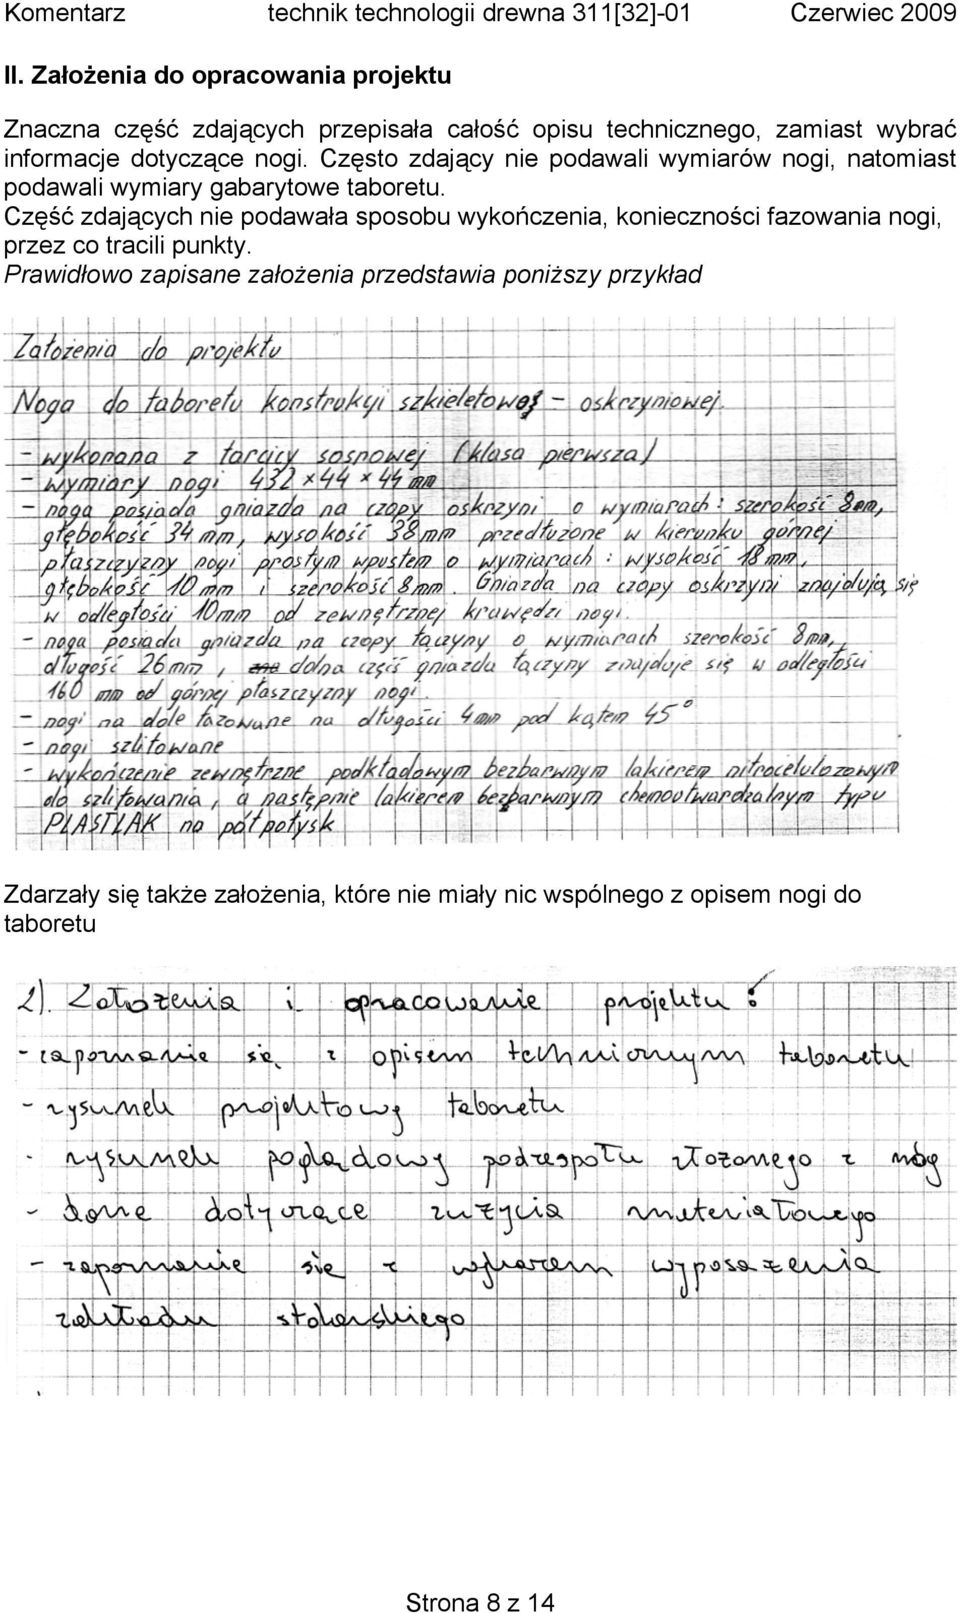 Komentarz technik technologii drewna 311[32]-01 Czerwiec 2009
II. Założenia do opracowania projektu
Znaczna część zdających przepisała całość opisu technicznego, zamiast wybrać
informacje dotyczące nogi. Często zdający nie podawali wymiarów nogi, natomiast
podawali wymiary gabarytowe taboretu.
Część zdających nie podawała sposobu wykończenia, konieczności fazowania nogi,
przez co tracili punkty.
Prawidłowo zapisane założenia przedstawia poniższy przykład
Założenia do projektu
Noga do taboretu konstrukyi szkieletowej - oskrzyniowej.
- wykonana z tarcicy sosnowej (klasa pierwsza)
- wymiary nogi 432 × 44 × 44 mm
- noga posiada gniazda na czopy oskrzyni o wymiarach: szerokość 8mm,
głębokość 34 mm, wysokość 38 mm przedłużone w kierunku górnej
płaszczyzny nogi prostym wpustem o wymiarach : wysokość 18 mm,
głębokość 10 mm i szerokość 8 mm. Gniazda na czopy oskrzyni znajdują się
w odległości 10mm od zewnętrznej krawędzi nogi.
- noga posiada gniazda na czopy łączyny o wymiarach szerokość 8mm,
długość 26 mm, dolna część gniazda łączyny znajduje się w odległości
160 mm od górnej płaszczyzny nogi.
- nogi na dole fazowane na długości 4 mm pod kątem 45°
- nogi szlifowane
- wykończenie zewnętrzne podkładowym bezbarwnym lakierem nitrocelulozowym
do szlifowania, a następnie lakierem bezbarwnym chemoutwardzalnym typu
PLASTLAK na półpołysk
Zdarzały się także założenia, które nie miały nic wspólnego z opisem nogi do
taboretu
2). Założenia i opracowanie projektu :
- zapoznanie się z opisem technicznym taboretu
- rysunek projektowy taboretu
- rysunek poglądowy podzespołu złożonego z nóg
- dane dotyczące zużycia materiałowego
- zapoznanie się z wykazem wyposażenia
zakładu stolarskiego
Strona 8 z 14